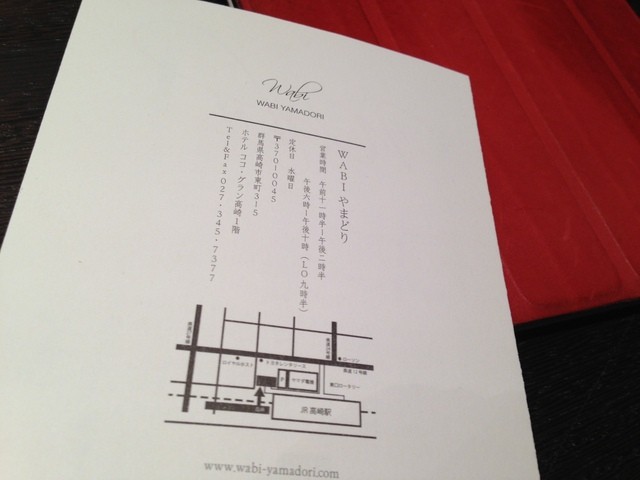 Wabi
WABI YAMADORI
WABIやまどり
営業時間 午前十一時半ー午後二時半
午後六時ー午後十時(LO九時半)
定休日 水曜日
〒370-0045
群馬県高崎市東町3-5
ホテル ココ・グラン高崎1階
Tel&Fax027・345・7377
ロイヤルホスト
トヨタレンタリース
ローソン
ヤマダ電機
東口ロータリー
JR 高崎駅
www.wabi-yamadori.com